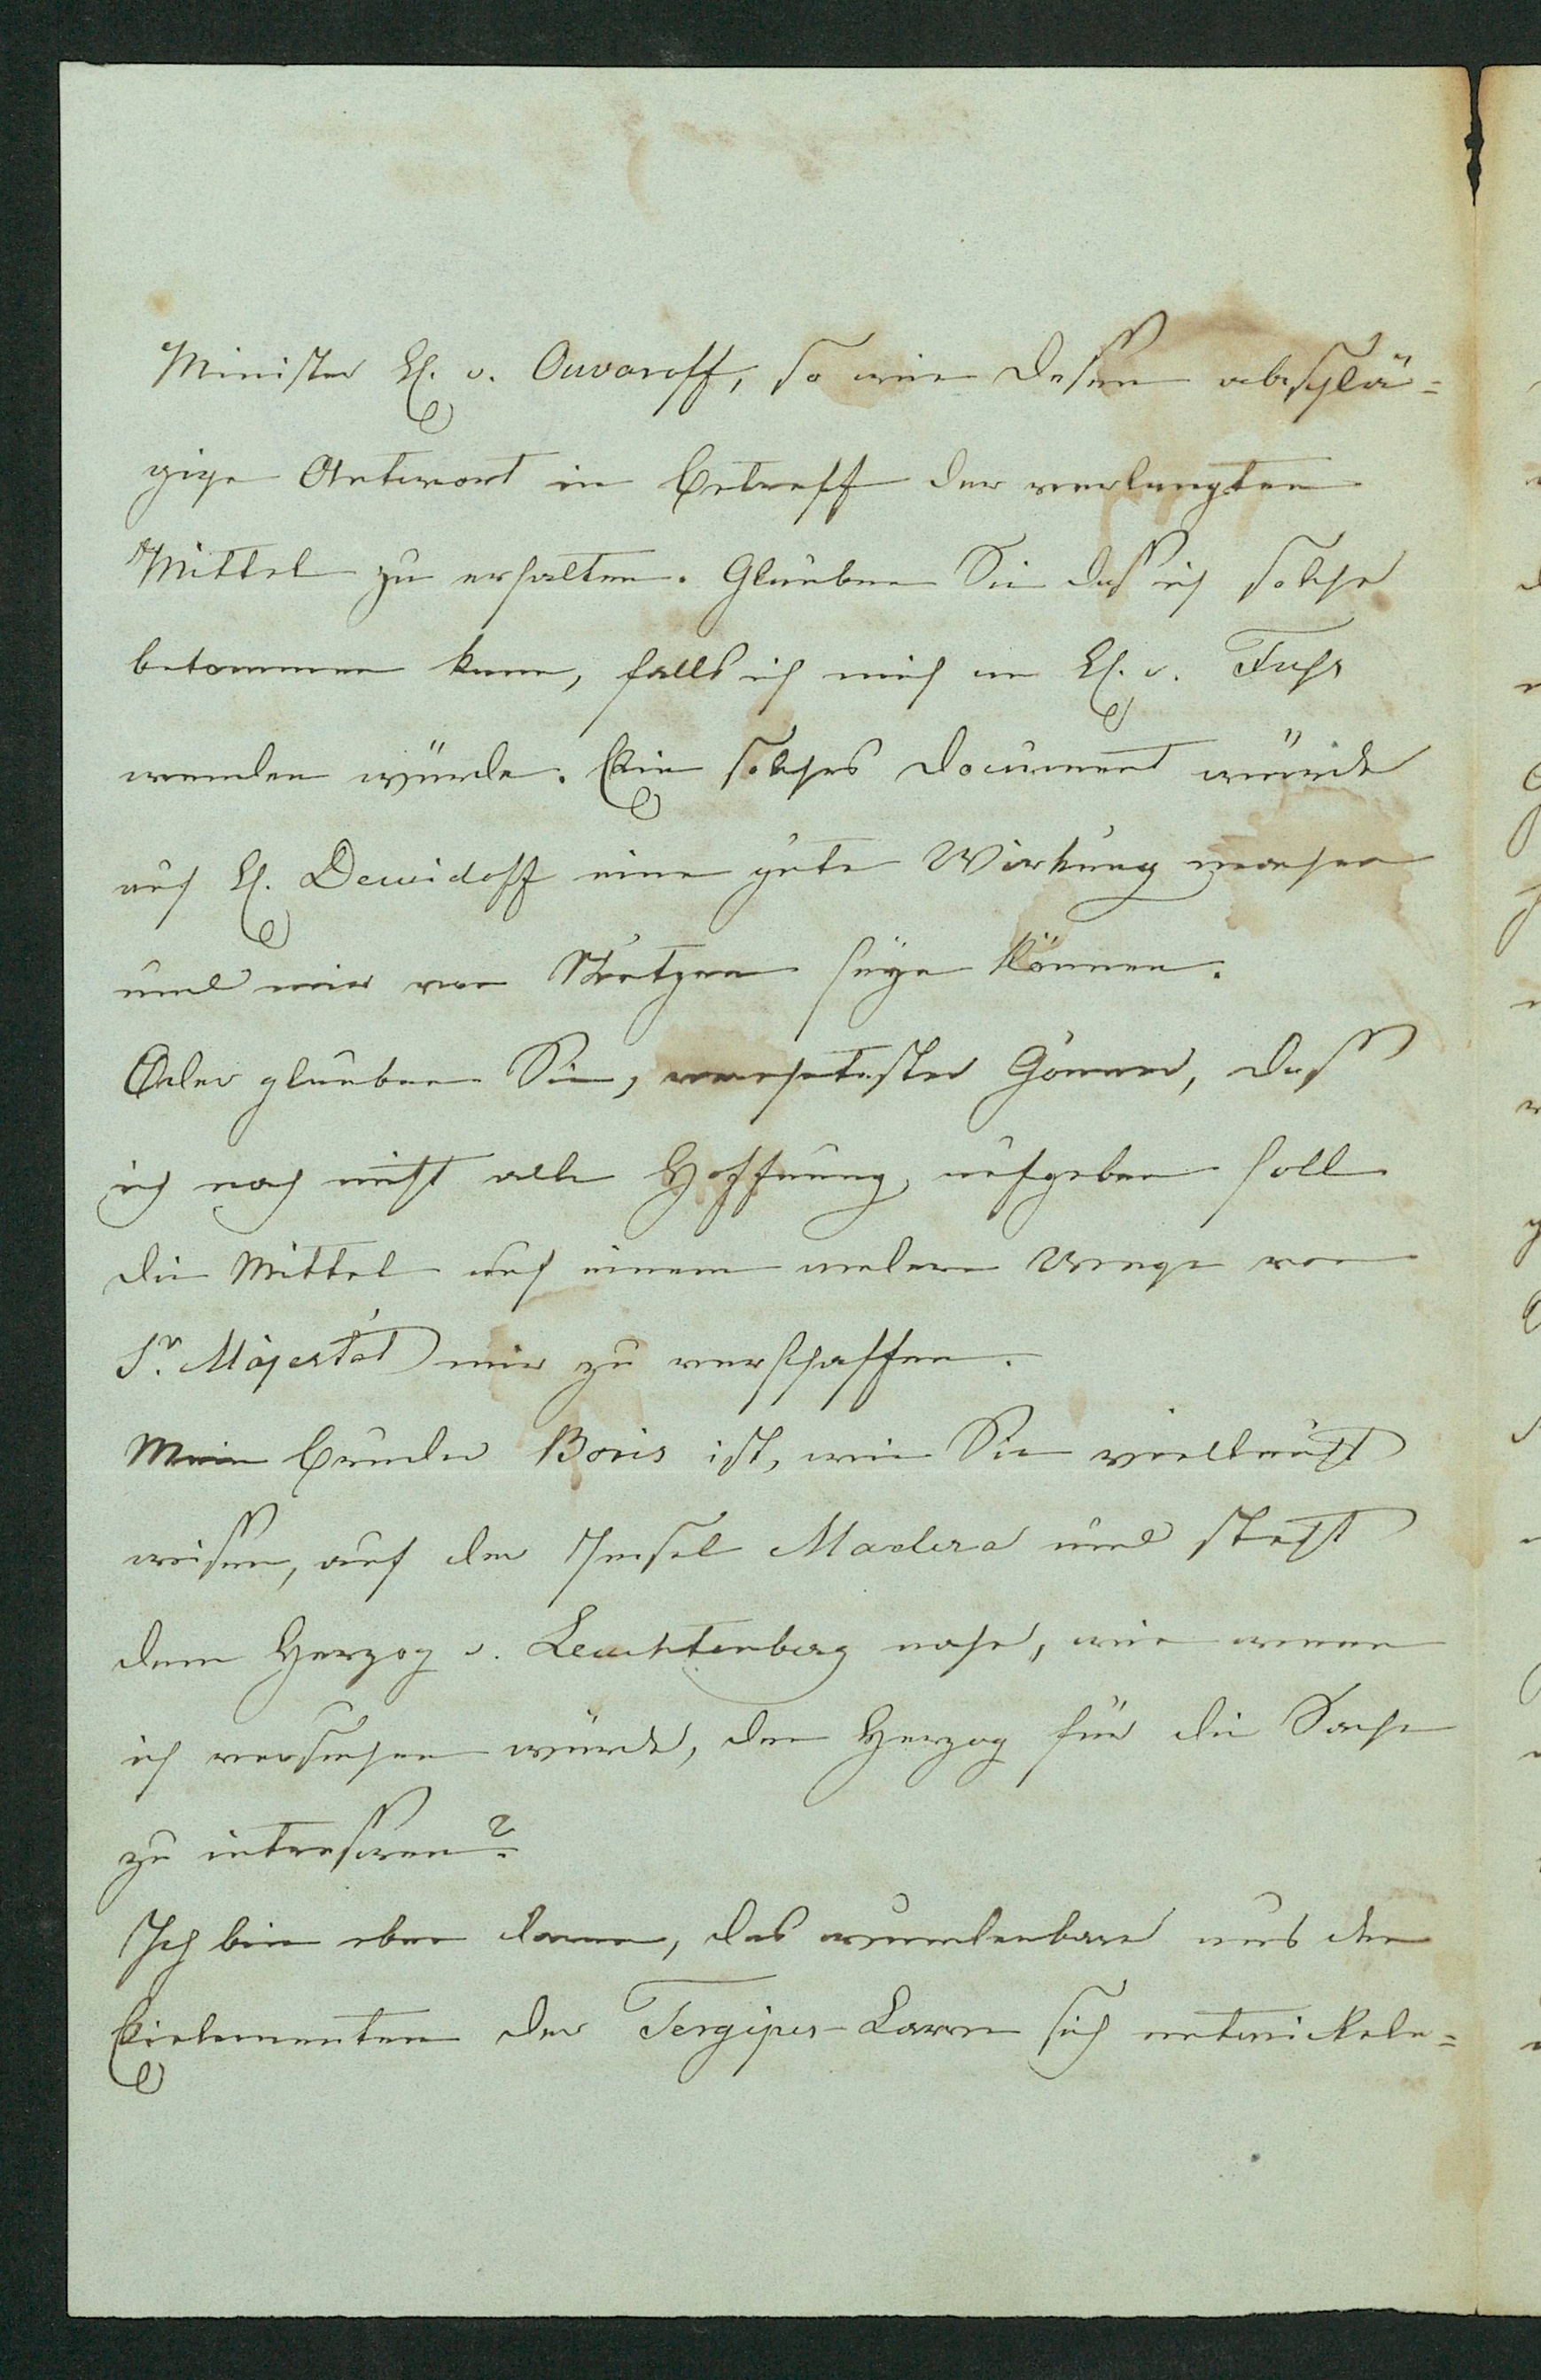 Minister H. v. Ouvaroff, so wie dessen abschlä-
gige Antwort in Betreff der verlangten
Mittel zu erhalten. Glauben Sie daß ich solche
bekommen kann, falls ich mich an H. v. Fuhs
wenden würde. Ein solches Document würde
auf H. Demidoff eine gute Wirkung machen
und mir von Nutzen seyn können.
Oder glauben Sie, verehrtester Gönner, daß
ich noch nicht alle Hoffnung aufgeben soll
die Mittel auf einem andern Wege von
Sr. Majestät mir zu verschaffen.
Mein Bruder Boris ist, wie Sie vielleicht
wissen, auf der Insel Madera und steht
dem Herzog v. Leuchtenberg nahe, wie wenn
ich versuchen würde, den Herzog für die Sache
zu intressiren?
Ich bin eben daran, das wunderbare aus den
Eielementen der Tergipes-Larven sich entwickeln-